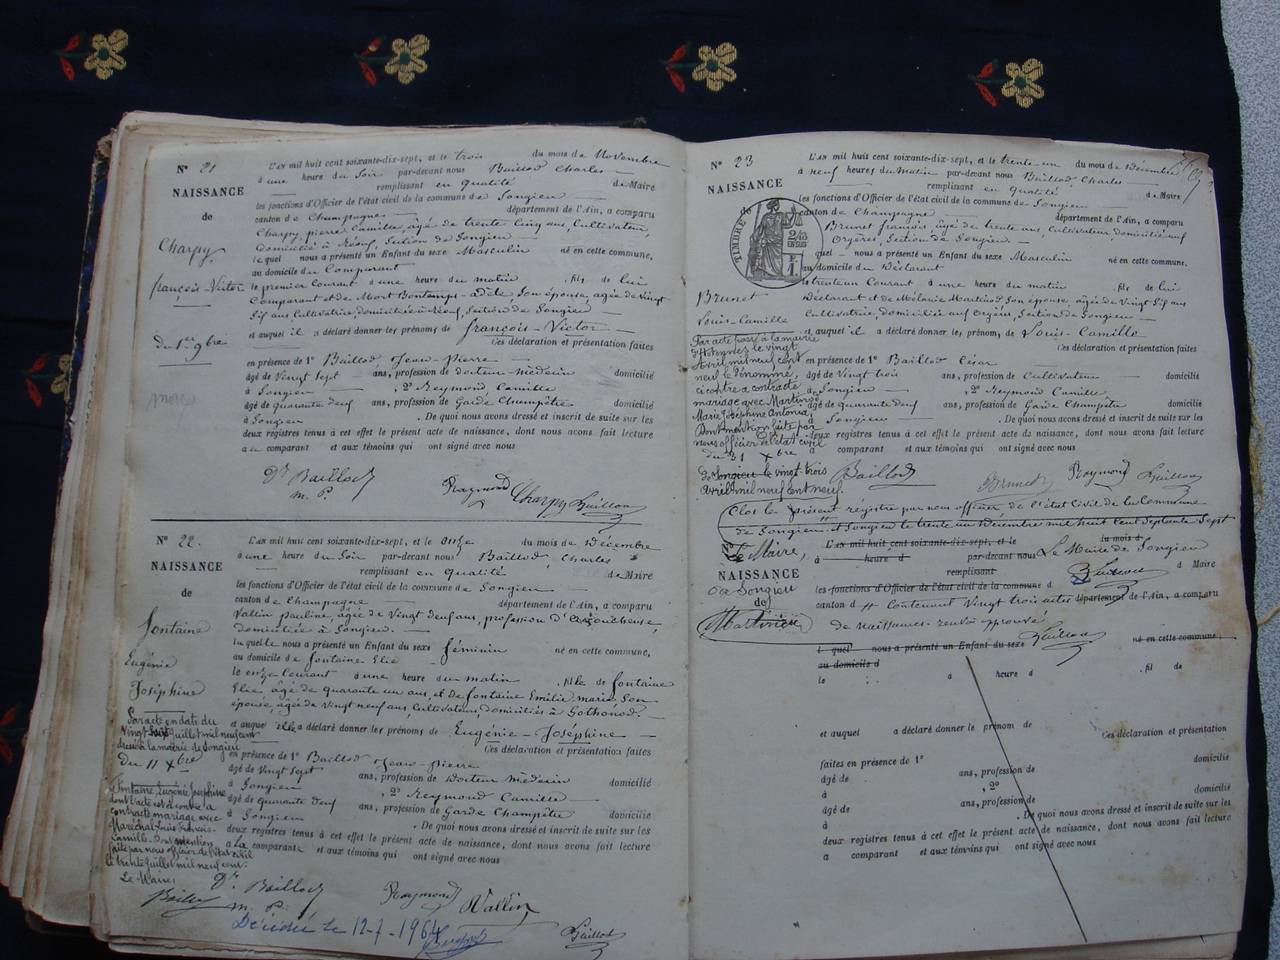 N° 21
NAISSANCE
de
Charpy,
françois-Victor
du 1er 9bre
L'AN mil huit cent soixante-dix-sept, et le trois du mois de Novembre
à une heure du Soir par-devant nous Baillod Charles
remplissant en qualité de Maire
les fonctions d'Officier de l'état civil de la commune de Songieu
canton de Champagne département de l'Ain, a comparu
Charpy, pierre Camille, âgé de trente cinq ans, Cultivateur,
domicilié à Section de Songieu
le quel nous a présenté un Enfant du sexe Masculin né en cette commune,
au domicile du Comparant
le premier Courant à une heure du matin, fils de lui
Comparant et de Mort Bontemps adèle, Son épouse, agée de Vingt
Six ans, Cultivatrice, domiciliée Section de Songieu
et auquel il a déclaré donner les prénoms de françois-Victor
Ces déclaration et présentation faites
en présence de 1° Baillod Jean-pierre
âgé de Vingt Sept ans, profession de docteur Médecin domicilié
à Songieu, 2° Reymond Camille
âgé de quarante neuf ans, profession de Garde Champêtre domicilié
à Songieu. De quoi nous avons dressé et inscrit de suite sur les
deux registres tenus à cet effet le présent acte de naissance, dont nous avons fait lecture
au comparant et aux témoins qui ont signé avec nous
Dr Baillod
m. p.
Raymond Charpy Baillod
N° 22.
NAISSANCE
de
fontaine
Eugénie
Joséphine
L'AN mil huit cent soixante-dix-sept, et le onze du mois de Décembre
à une heure du Soir par-devant nous Baillod, Charles
remplissant en qualité de Maire
les fonctions d'Officier de l'état civil de la commune de Songieu
canton de Champagne département de l'Ain, a comparu
Vallin pauline, agée de Vingt neuf ans, profession d'accoucheuse,
domiciliée à Songieu.
la quelle nous a présenté un Enfant du sexe féminin né en cette commune,
au domicile de fontaine Elie
le onze Courant à une heure du matin, fille de fontaine
Elie, âgé de quarante un ans, et de fontaine Emilie marie, Son
épouse, agée de Vingt neuf ans, Cultivateurs, domiciliés à Gothonod.
et auquel elle a déclaré donner les prénoms de Eugénie-Joséphine
Ces déclaration et présentation faites
en présence de 1° Baillod Jean-pierre
âgé de Vingt Sept ans, profession de Docteur Médecin domicilié
à Songieu, 2° Reymond Camille
âgé de quarante neuf ans, profession de Garde Champêtre domicilié
à Songieu. De quoi nous avons dressé et inscrit de suite sur les
deux registres tenus à cet effet le présent acte de naissance, dont nous avons fait lecture
à la comparante et aux témoins qui ont signé avec nous
Par acte en date du
Vingt Sept juillet mil neuf cent
dressé à la mairie de Songieu
du 11 Xbre
fontaine, Eugénie, Joséphine
dont l'acte est ci-contre a
contracté mariage avec
Maréchal Louis
Camille. Dont mention
faite par nous officier de l'état civil
le trente juillet mil neuf cent.
Le Maire,
Dr Baillod
m. p.
Raymond Vallin
Baillod
Décédée le 12-7-1964
N° 23
NAISSANCE
de
TIMBRE
2/10
EN SUS
F
1.
Brunet
Louis-Camille
L'AN mil huit cent soixante-dix-sept, et le trente un du mois de Décembre
à neuf heures du Matin par-devant nous Baillod, Charles
remplissant en qualité de Maire
les fonctions d'Officier de l'état civil de la commune de Songieu
canton de Champagne département de l'Ain, a comparu
Brunet françois, âgé de trente ans, Cultivateur, domicilié
Orgères, Section de Songieu
quel nous a présenté un Enfant du sexe Masculin né en cette commune,
au domicile du Déclarant
le trente un Courant à une heure du matin, fils de lui
Déclarant et de Mélanie Martinod Son épouse, agée de Vingt Six ans
Cultivatrice, domiciliée aux Orgères, Section de Songieu
et auquel il a déclaré donner les prénoms de Louis-Camille
Ces déclaration et présentation faites
en présence de 1° Baillod César
âgé de Vingt trois ans, profession de Cultivateur domicilié
à Songieu, 2° Reymond Camille
âgé de quarante neuf ans, profession de Garde Champêtre domicilié
à Songieu. De quoi nous avons dressé et inscrit de suite sur les
deux registres tenus à cet effet le présent acte de naissance, dont nous avons fait lecture
au comparant et aux témoins qui ont signé avec nous
Par acte passé à la mairie
le vingt
Avril mil neuf cent
neuf le dénommé
ci contre a contracté
mariage avec Martinod
Marie Joséphine Antonia,
Dont mention faite par
nous officier de l'état civil
du 31 Xbre
de Songieu le vingt-trois
Avril mil neuf cent neuf.
Baillod Brunet Raymond Baillod
Clos le présent régistre par nous officier de l'état Civil de la Commune
de Songieu. à Songieu le trente un Décembre mil huit cent Septante Sept
Le Maire, L'AN mil huit cent soixante-dix-sept, et le du mois d
à heure d par-devant nous Le Maire de Songieu
remplissant Baillod d Maire
NAISSANCE
de Songieu
de
les fonctions d'Officier de l'état civil de la commune d
canton d Contenant Vingt trois actes département de l'Ain, a comparu
de naissances. renvoi approuvé
Baillod
l quel nous a présenté un Enfant du sexe né en cette commune,
au domicile d
le à heure d, fil de
et auquel a déclaré donner le prénom de
Ces déclaration et présentation
faites en présence de 1°
âgé de ans, profession de domicilié
à, 2°
âgé de ans, profession de domicilié
à. De quoi nous avons dressé et inscrit de suite sur les
deux registres tenus à cet effet le présent acte de naissance, dont nous avons fait lecture
a comparant et aux témoins qui ont signé avec nous